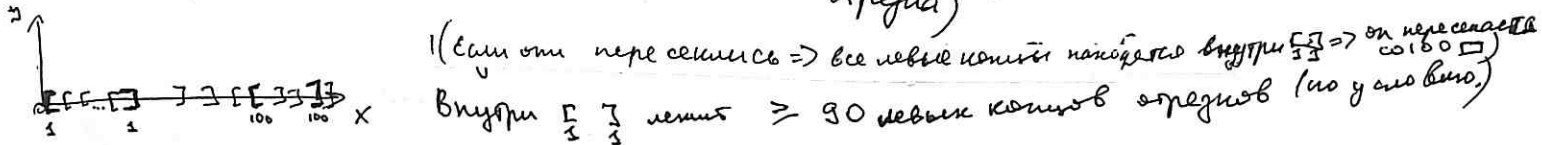 отрезка)
y
1(Если они пересеклись => все левые концы находятся внутри [ ] => он пересекается
1 1
со 100 □)
0 [ [ [ [ ... [ ] ] ] [ [ [ ] ] ] ] x
1 1 100 100
Внутри [ ] лежит ≥ 90 левых концов отрезков (по условию.)
1 1